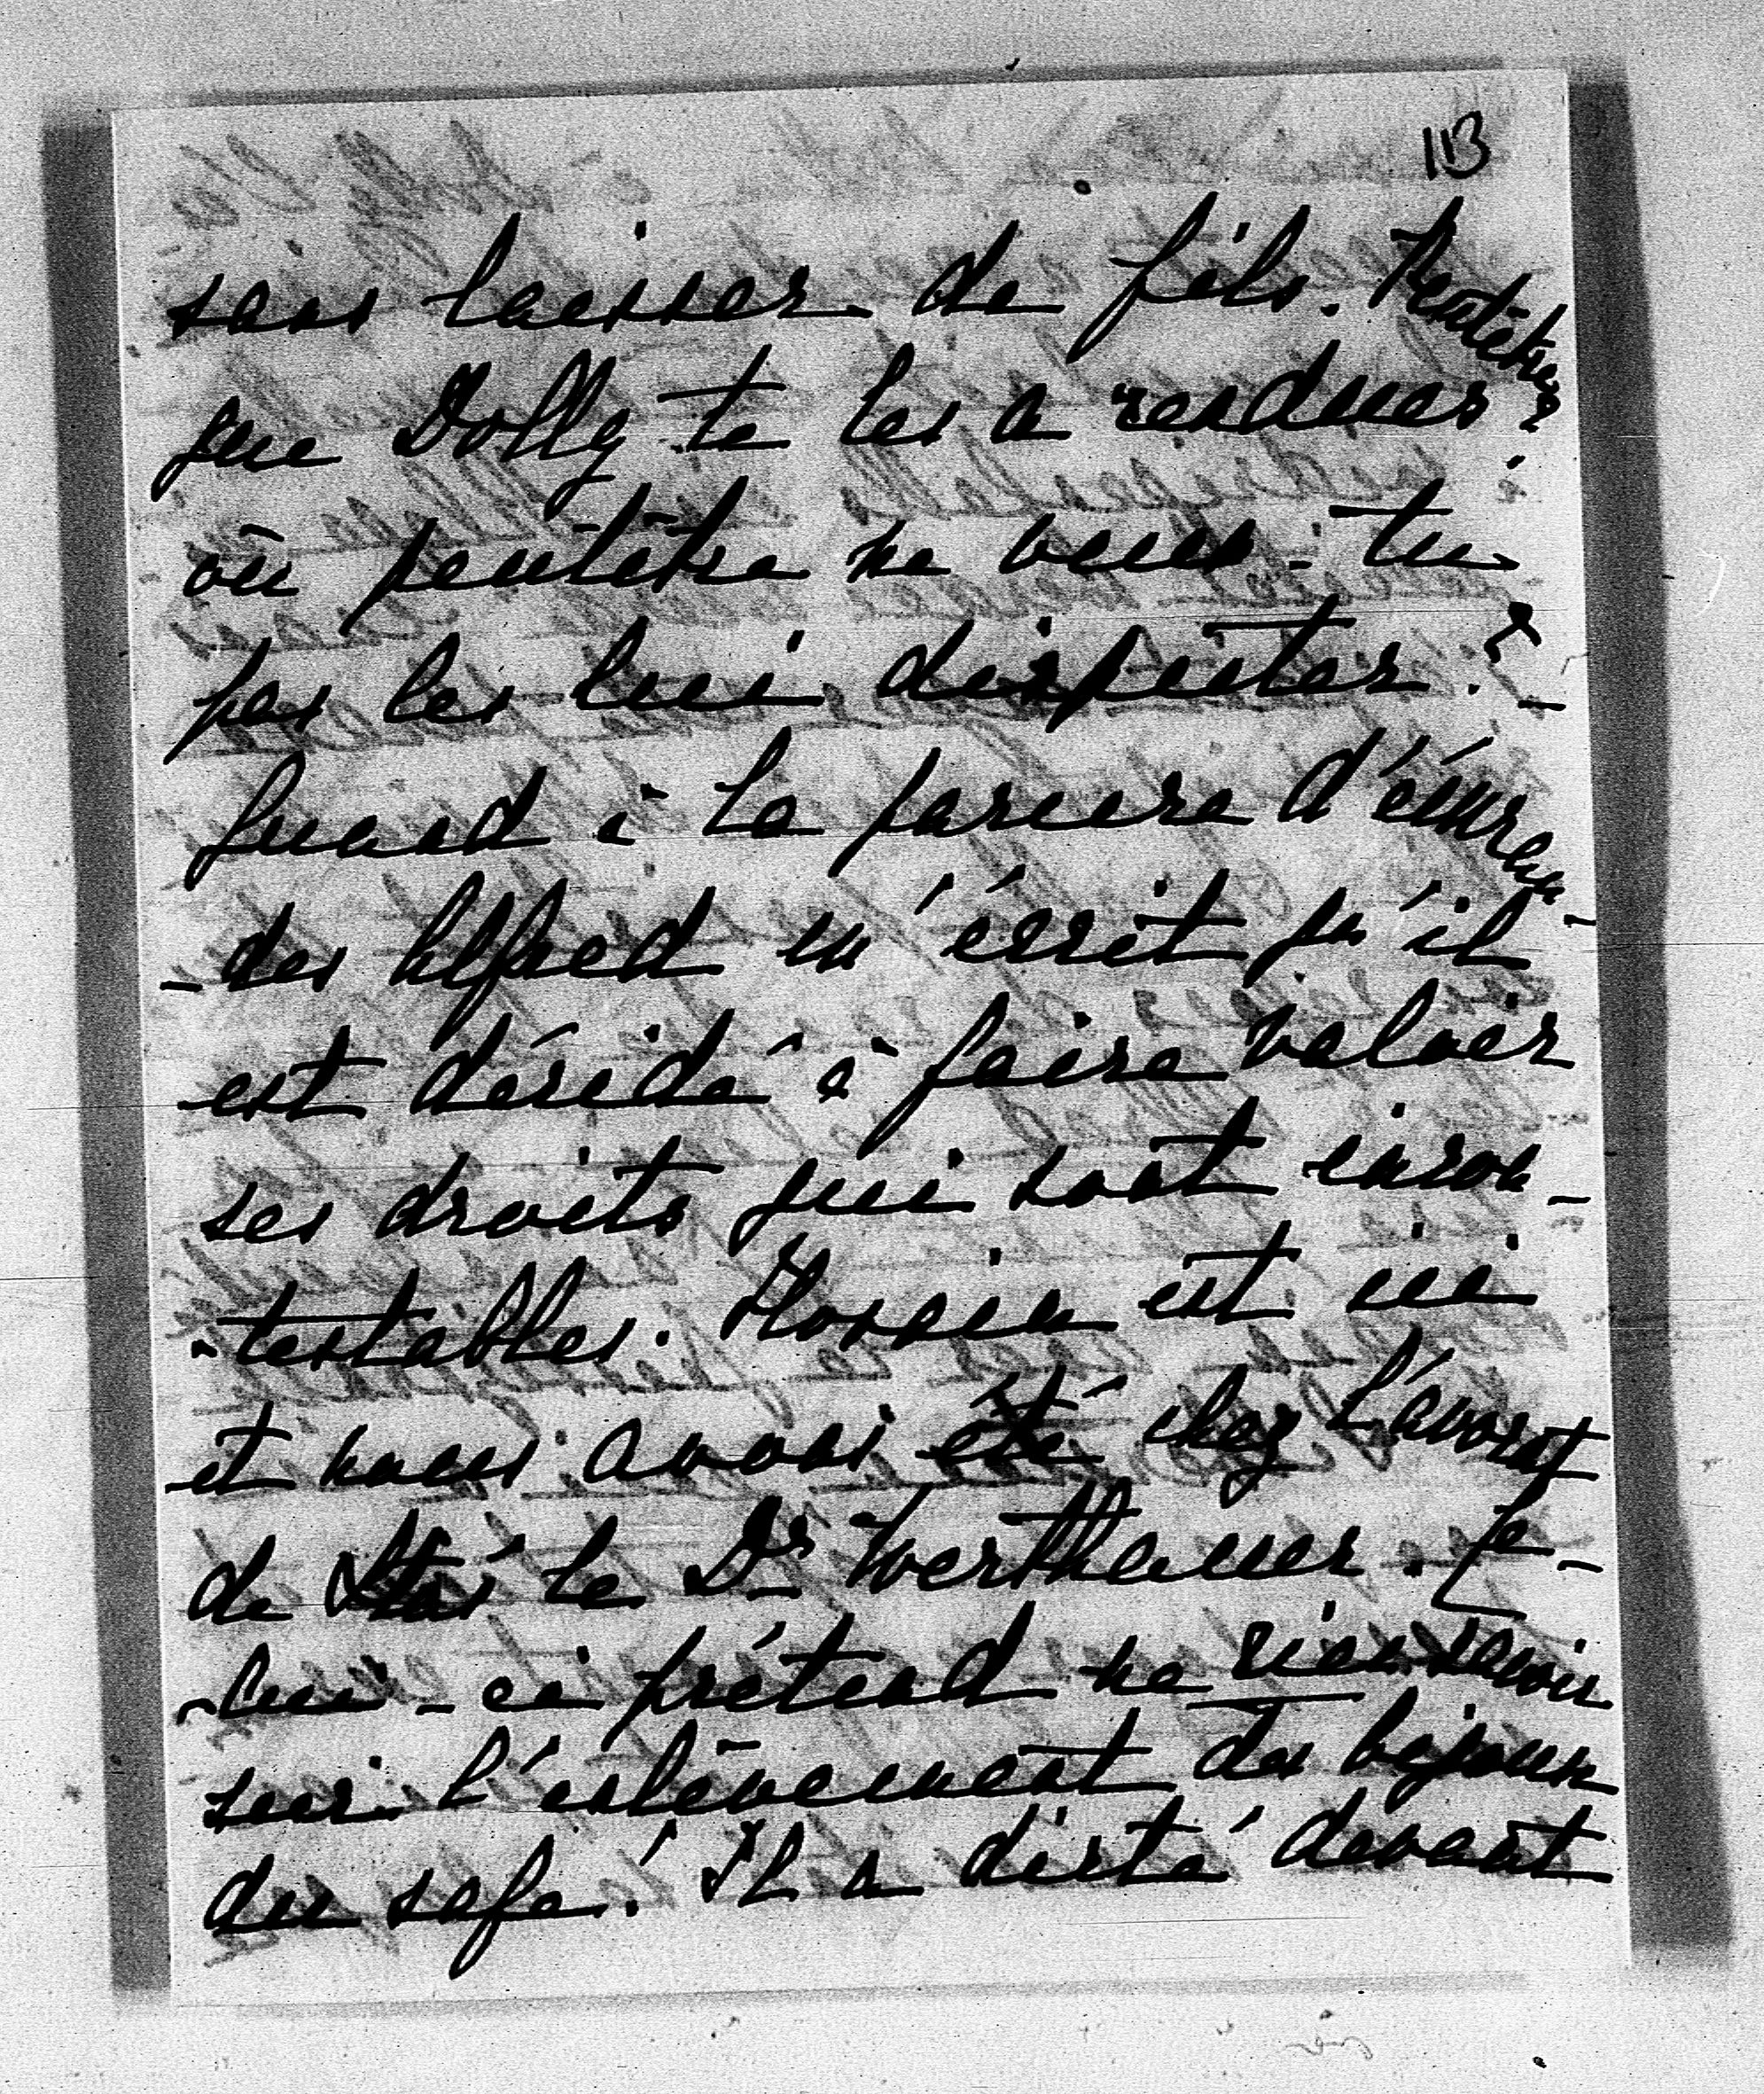 113
sans laisser de fils. Peutêtre
que Dolly te les a rendues?
où peutêtre ne veux-tu
pas les lui disputer?
Quand à la parure d'émerau-
-des Alfred m'écrit qu'il
est décidé à faire valoir
ses droits qui sont incon-
-testables. est ici
et nous avons été chez l'avocat
de le Dr Werthauer. Ce-
-lui-ci prétend ne rien savoir
sur l'enlèvement des bijoux
du safe! Il a dicté devant